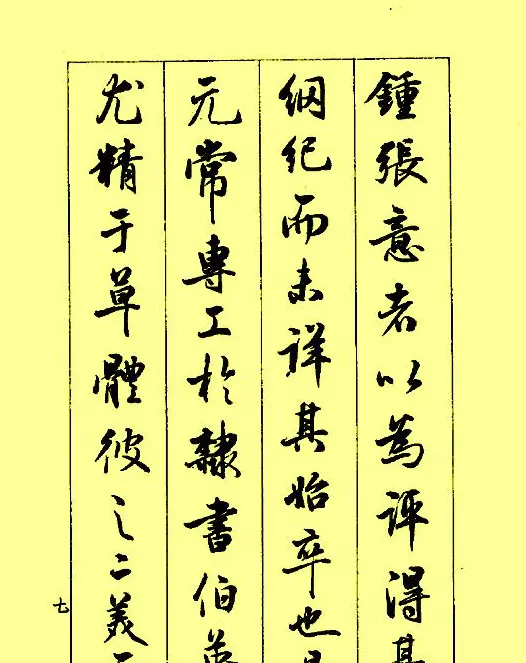 鍾張意者以為評得其
綱紀而未詳其始卒也且
元常專工於隸書伯英
尤精于草體彼之二美而
七